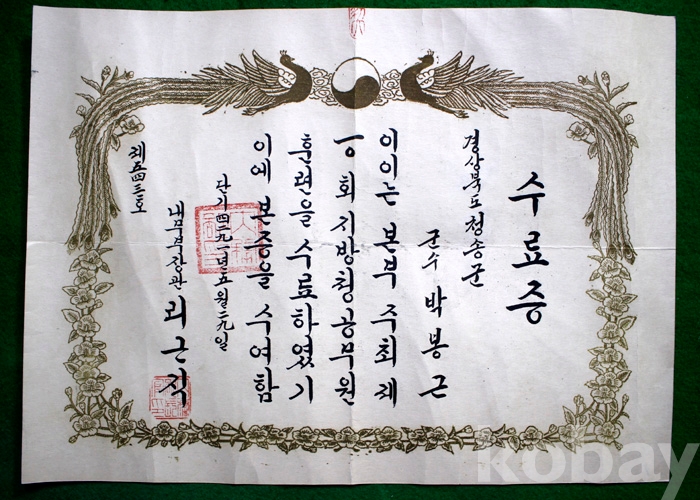 수료증
경상북도청송군
군수 박봉근
이이는 본부 주최 제
一회 지방청공무원
훈련을 수료하였기
이에 본증을 수여함
단기四二九一年五月二九일
내무부장관 리근직
제五四三호
kobay